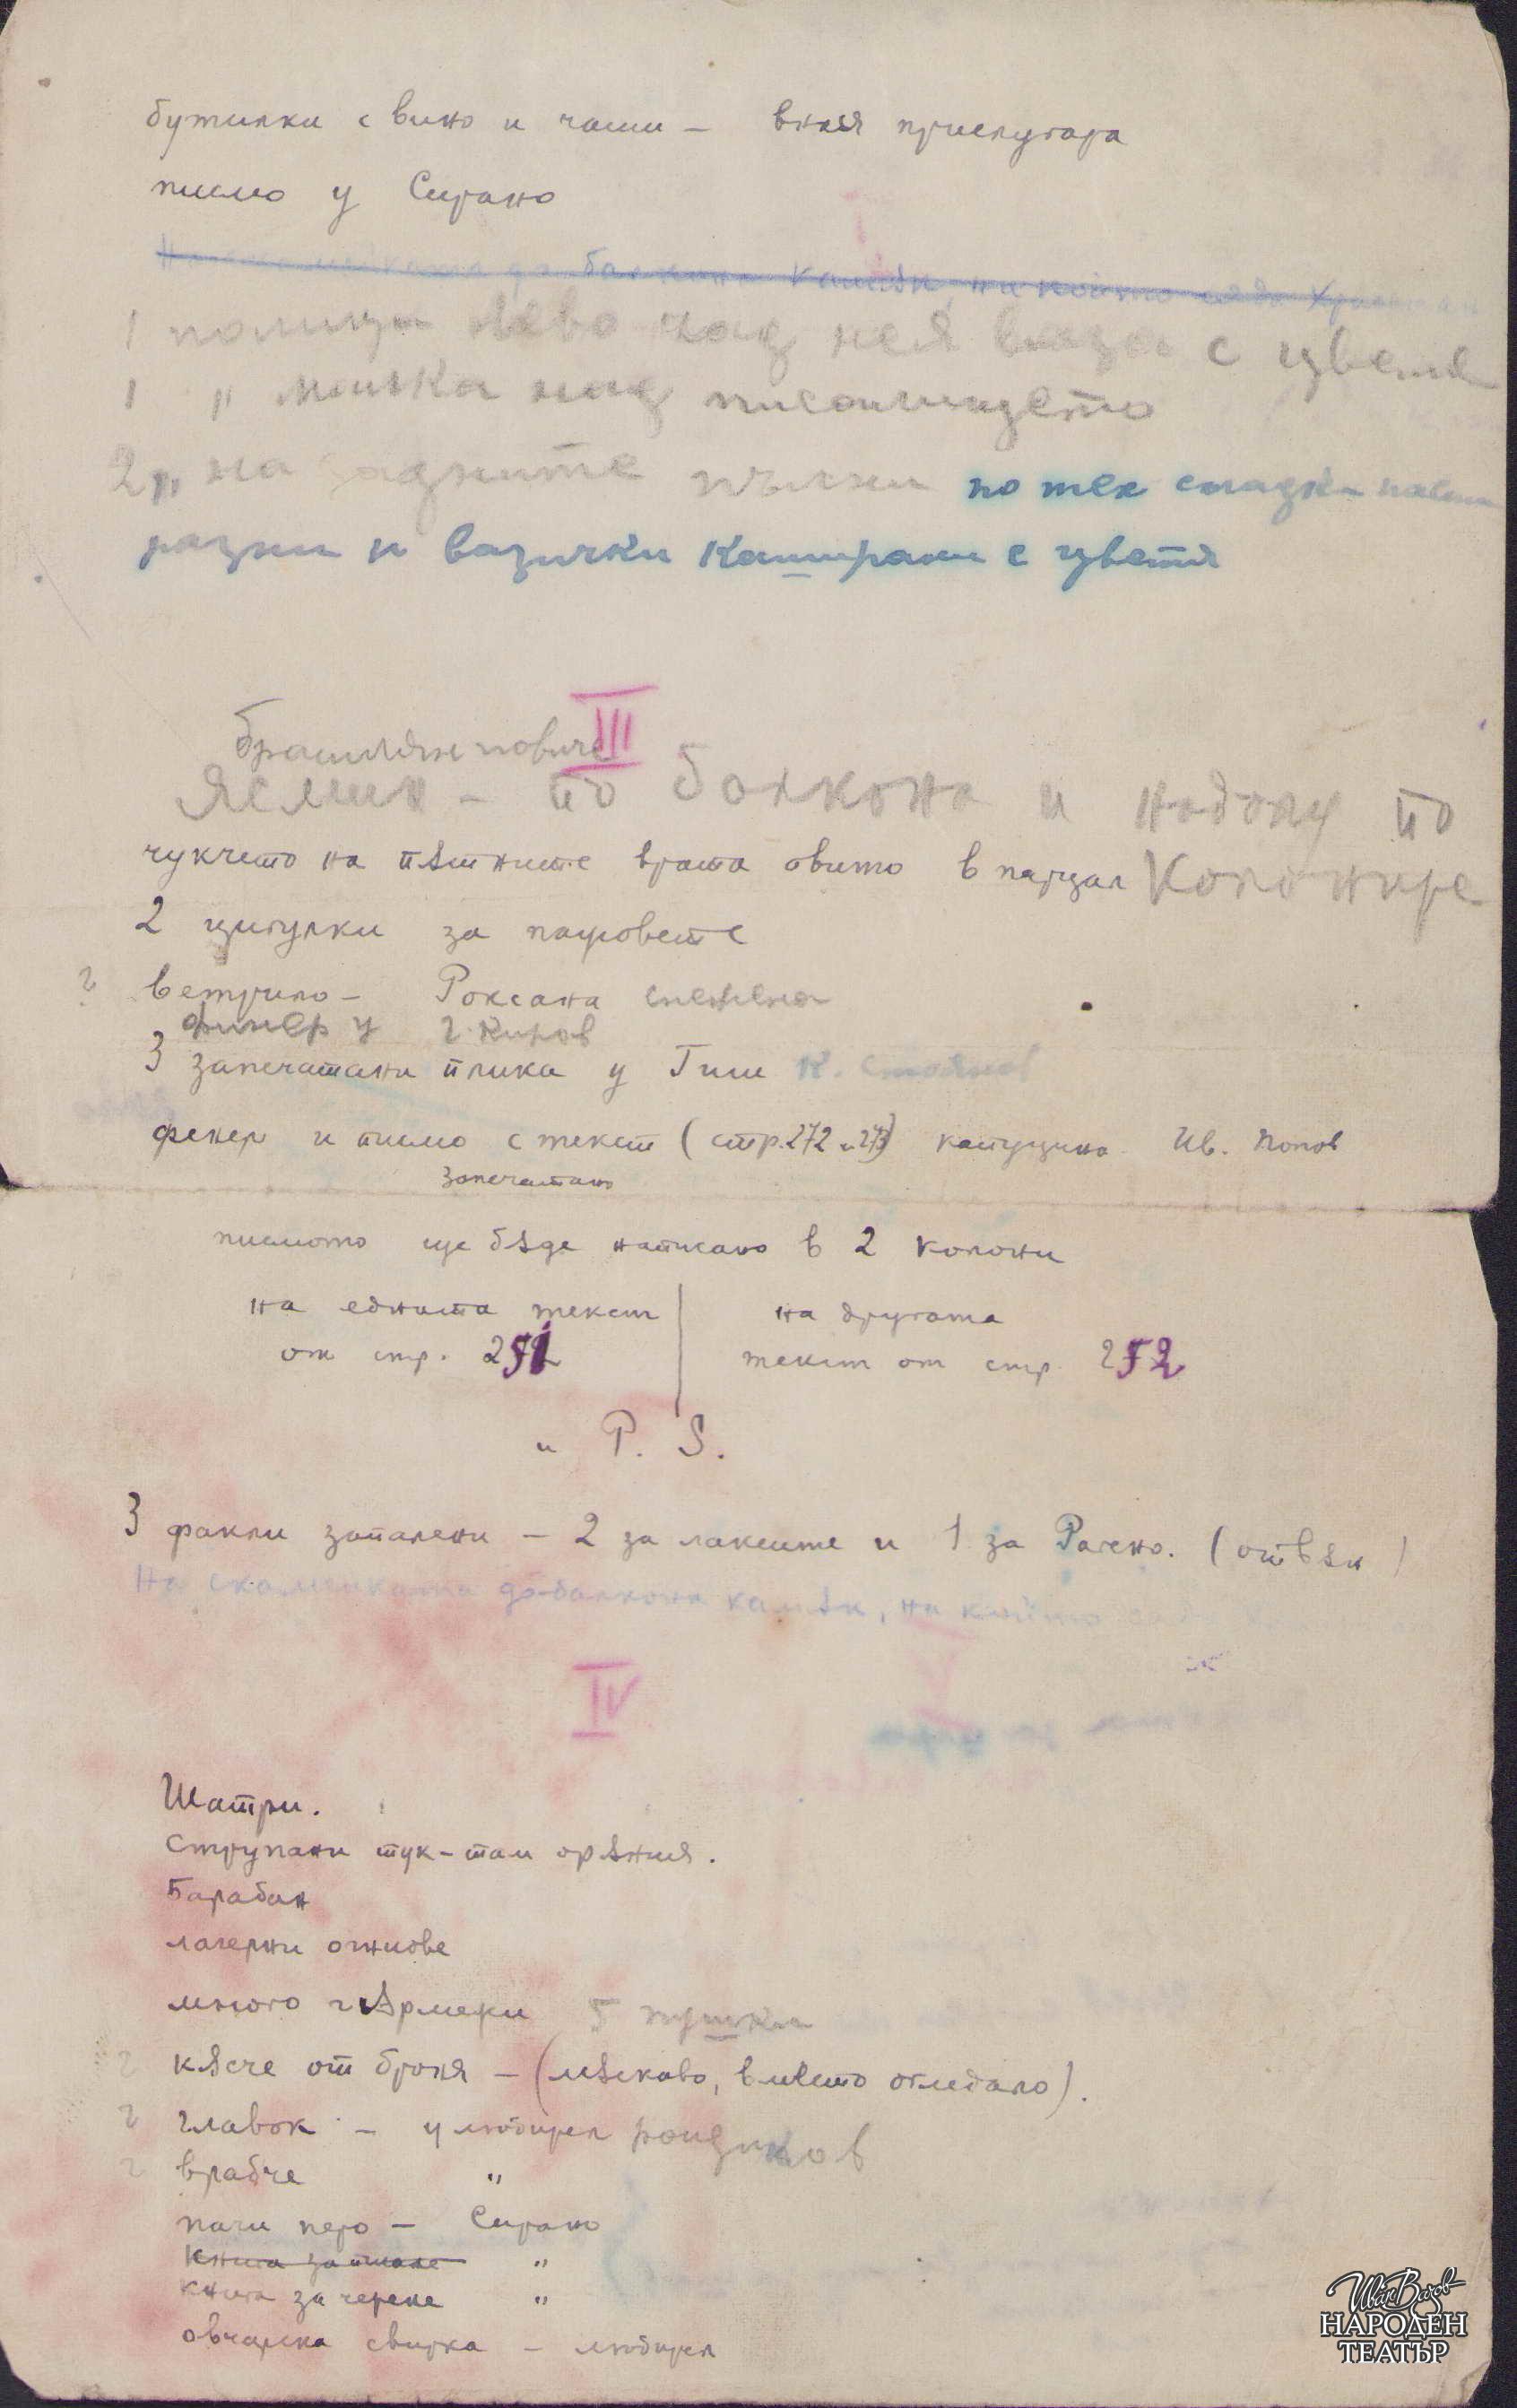 бутилки с вино и чаши – внася прислугара
писмо у Сирано
балкона камѫк, на който
1 полица лево над нея ваза с цветя
1 " малка над писалището
2 " на задните по тех сладки
разни и вазички каширани с цветя
III
бръшлян повиче
Ясмин – по балкона и надолу по
чукчето на пѫтните врата овито в парцал колонире
2 цигулки за пажовете
? ветрило – Роксана спелена
финер у г. Киров
3 запечатани плика у Гиш К. Стоянов
фенер и писмо с текст (стр. 272 и 273) капуцина Ив. Попов
запечатано
писмото ще бѫде написано в 2 колони
на едната текст | на другата
от стр. 251 | текст от стр. 252
и P. S.
3 факли запалени – 2 за лакеите и 1 за Рагено. (отвѫн)
На скамейката до балкона камѫк, на който
IV
Шатри.
Струпани тук-там орѫжия.
Барабан
лагерни огньове
много гѫрмежи 5 пушки
кѫсче от броня – (лѫскаво, вместо огледало).
главок – у любирел
врабче "
пачи перо – Сирано
книга "
книга за четене "
овчарска свирка – любирел
Иван Вазов
НАРОДЕН
ТЕАТЪР